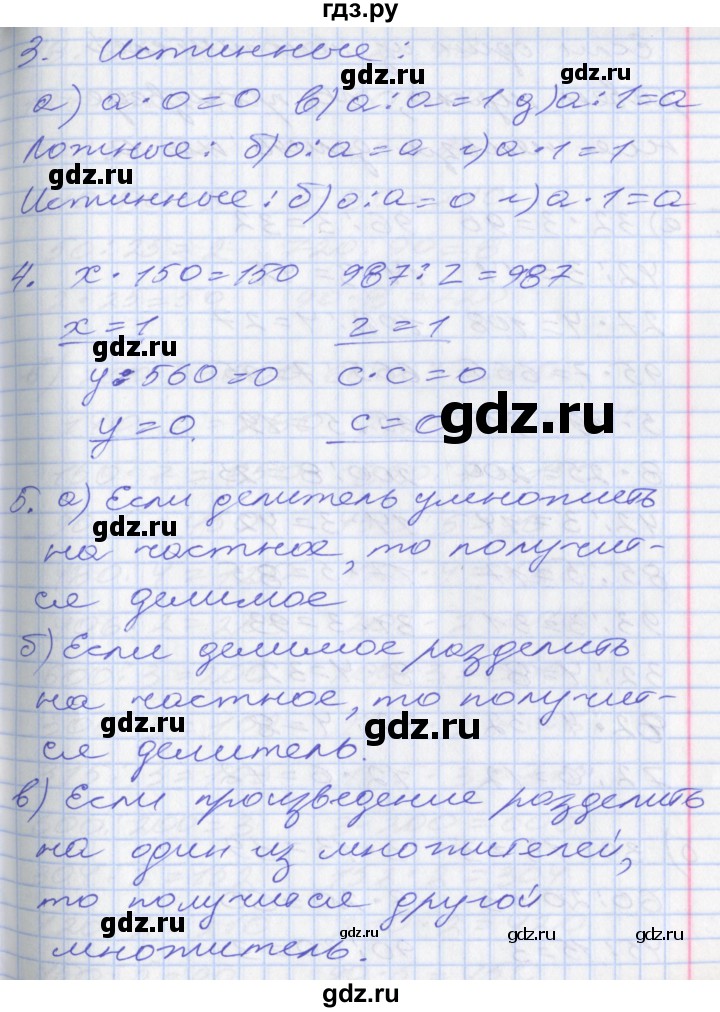 гдз.ру
3. Истинные:
а) a · 0 = 0 в) a : a = 1 д) a : 1 = a
Ложные: б) 0 : a = a г) a · 1 = 1
Истинные: б) 0 : a = 0 г) a · 1 = a
4. x · 150 = 150 987 : z = 987
x = 1 z = 1
y : 560 = 0 c · c = 0
y = 0. c = 0
5. а) Если делитель умножить
на частное, то получит-
ся делимое
б) Если делимое разделить
на частное, то получит-
ся делитель.
в) Если произведение разделить
на один из множителей,
то получится другой
множитель.
gdz.ru
gdz.ru
gdz.ru
gdz.ru
gdz.ru
gdz.ru
gdz.ru
gdz.ru
gdz.ru
gdz.ru
gdz.ru
gdz.ru
gdz.ru
gdz.ru